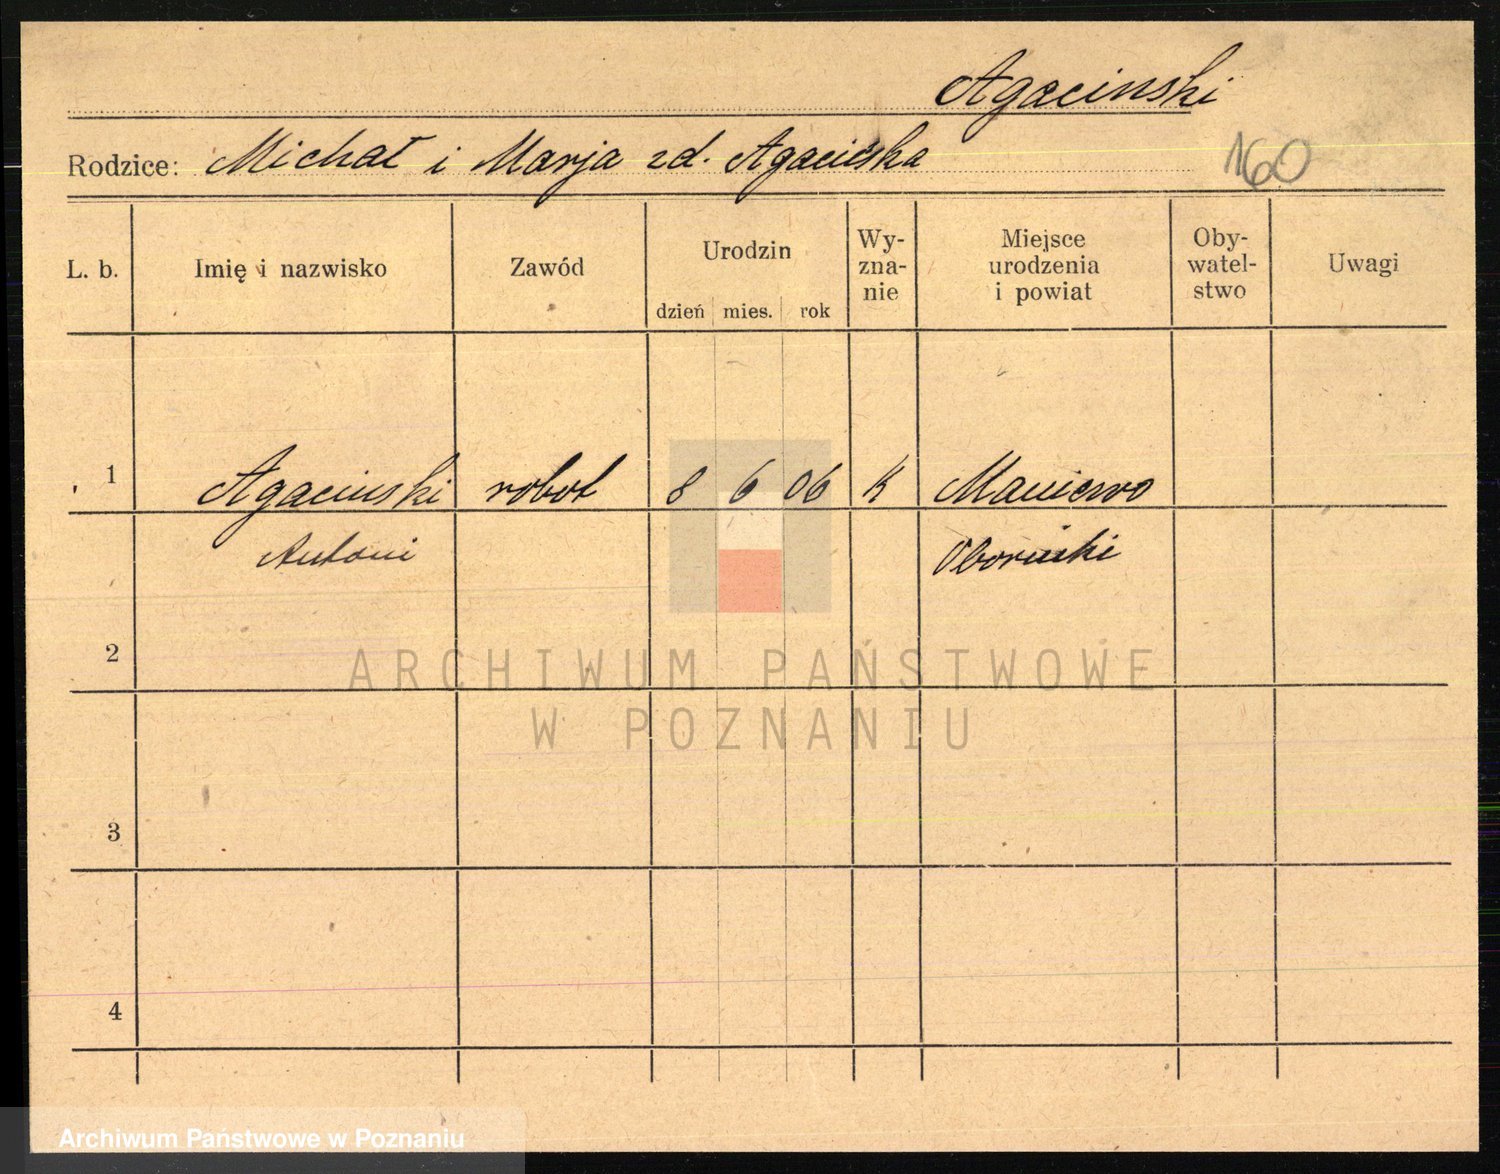 Agacinski
Rodzice: Michał i Marja zd. Agacińska
160
L. b. Imię i nazwisko Zawód Urodzin Wy-zna-nie Miejsce urodzenia i powiat Oby-watel-stwo Uwagi
dzień mies. rok
1 Agacinski robot 8 6 06 k Maniewo
Antoni Oborniki
2
ARCHIWUM PAŃSTWOWE
W POZNANIU
3
4
Archiwum Państwowe w Poznaniu